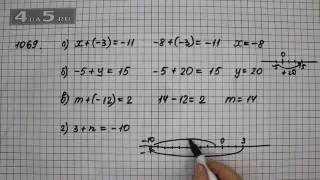 4
ua5.ru
1069.
а) x+(-3)=-11   -8+(-3)=-11   x=-8
б) -5+y=15   -5+20=15   y=20
0
-5 +20 15
в) m+(-12)=2   14-12=2   m=14
г) 3+n=-10
-10 0 3